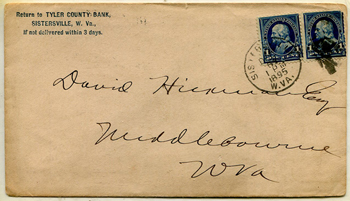 Return to TYLER COUNTY BANK,
SISTERSVILLE, W. Va.,
If not delivered within 3 days.
1895
W.VA.
David Hickman Esq
Middlebourne
W Va